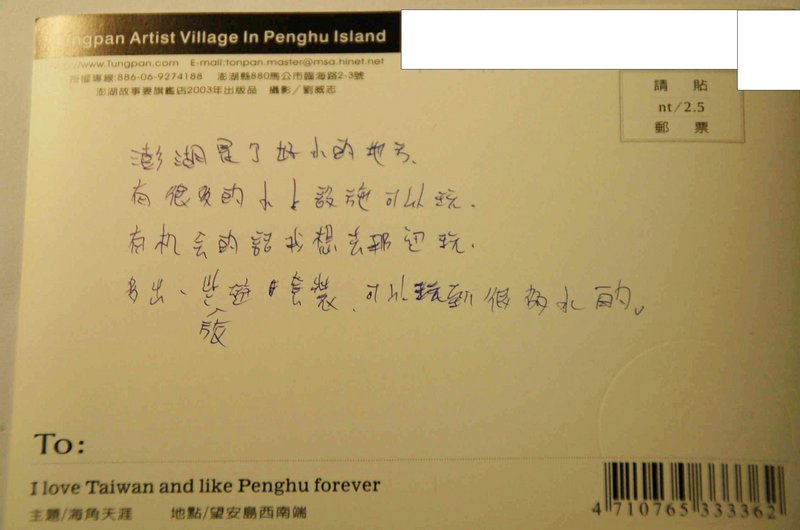 ungpan Artist Village In Penghu Island
//www.Tungpan.com E-mail:tonpan.master@msa.hinet.net
授權專線:886-06-9274188 澎湖縣880馬公市臨海路2-3號
澎湖故事妻旗艦店2003年出版品 攝影/劉威志
請貼
nt/2.5
郵票
澎湖是了好水的地方
有很多的水上設施可以玩.
有机会的話我想去那边玩.
多出、些遊 套裝、可以玩到很多水的。
To:
I love Taiwan and like Penghu forever
主題/海角天涯 地點/望安島西南端
4 710765 333362